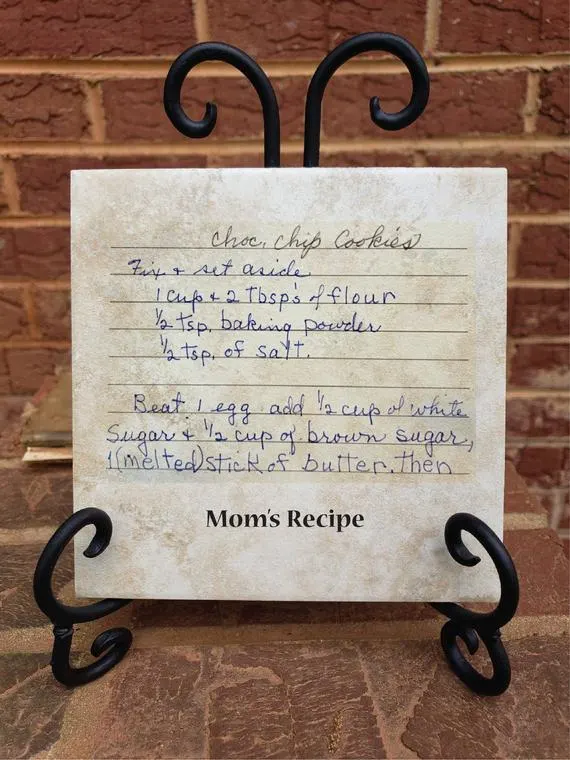 Choc. Chip Cookies
Fix + set aside
1 cup + 2 Tbsp's of flour
½ tsp. baking powder
½ tsp. of salt.
Beat 1 egg add ½ cup of white
Sugar + ½ cup of brown sugar,
1 (melted) stick of butter. Then
Mom's Recipe